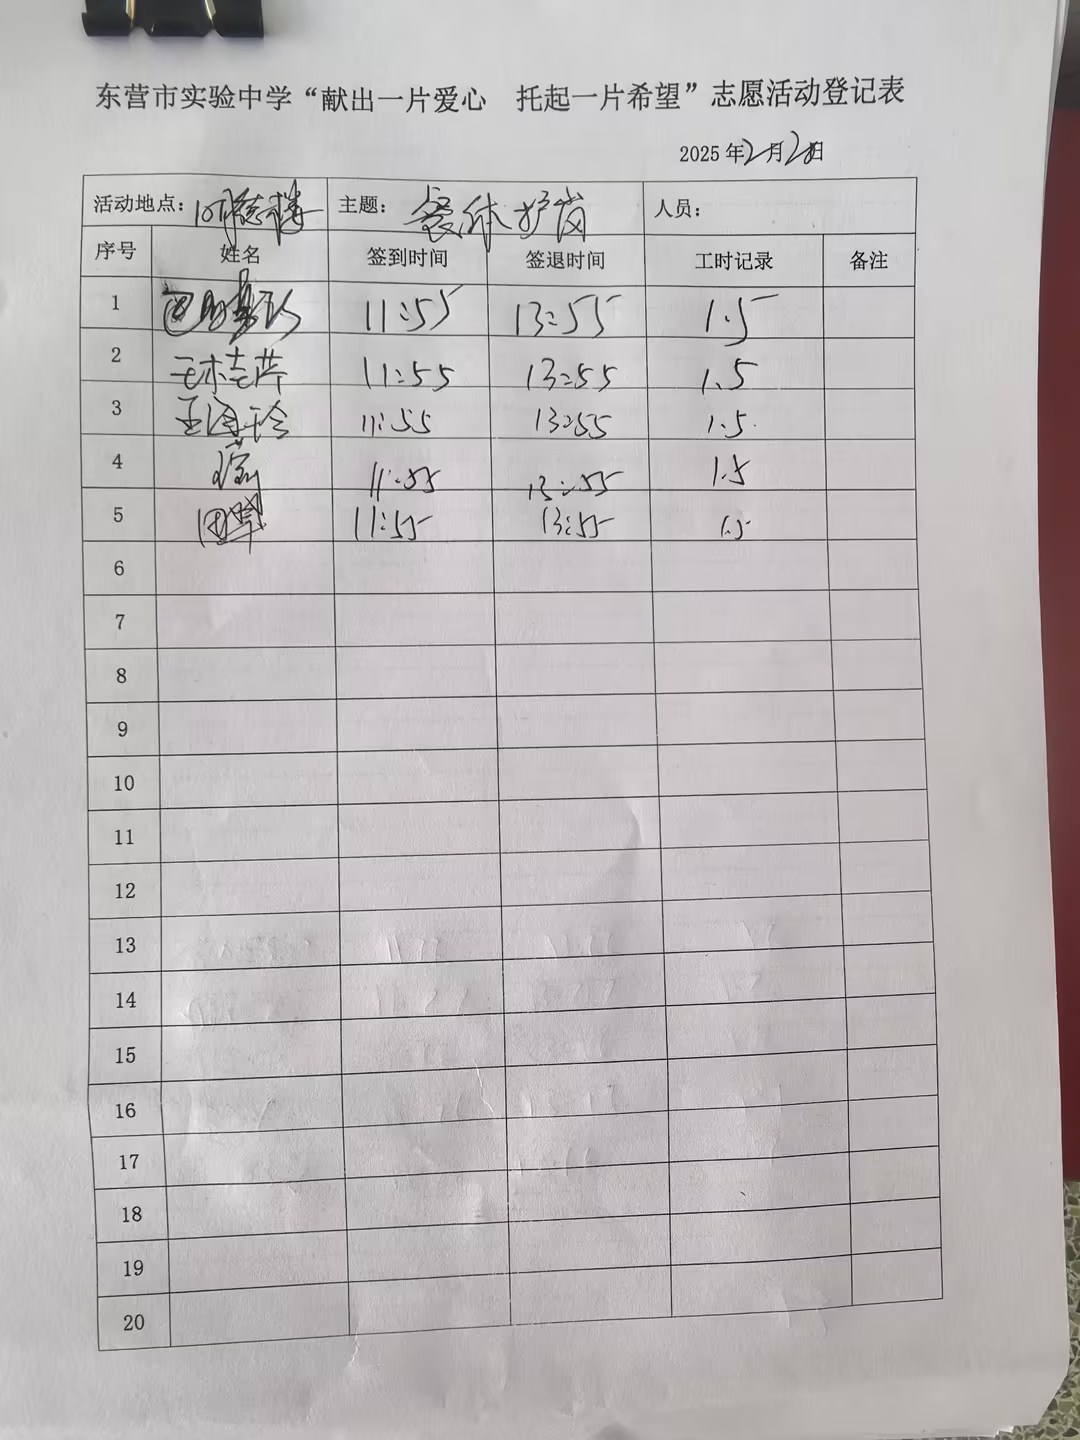 东营市实验中学“献出一片爱心 托起一片希望”志愿活动登记表
2025年2月2日
活动地点：明德楼 主题：餐休护岗 人员：
序号 姓名 签到时间 签退时间 工时记录 备注
1 11:55 13:55 1.5
2 11:55 13:55 1.5
3 11:55 13:55 1.5
4 11:55 13:55 1.5
5 11:55 13:55 1.5
6
7
8
9
10
11
12
13
14
15
16
17
18
19
20